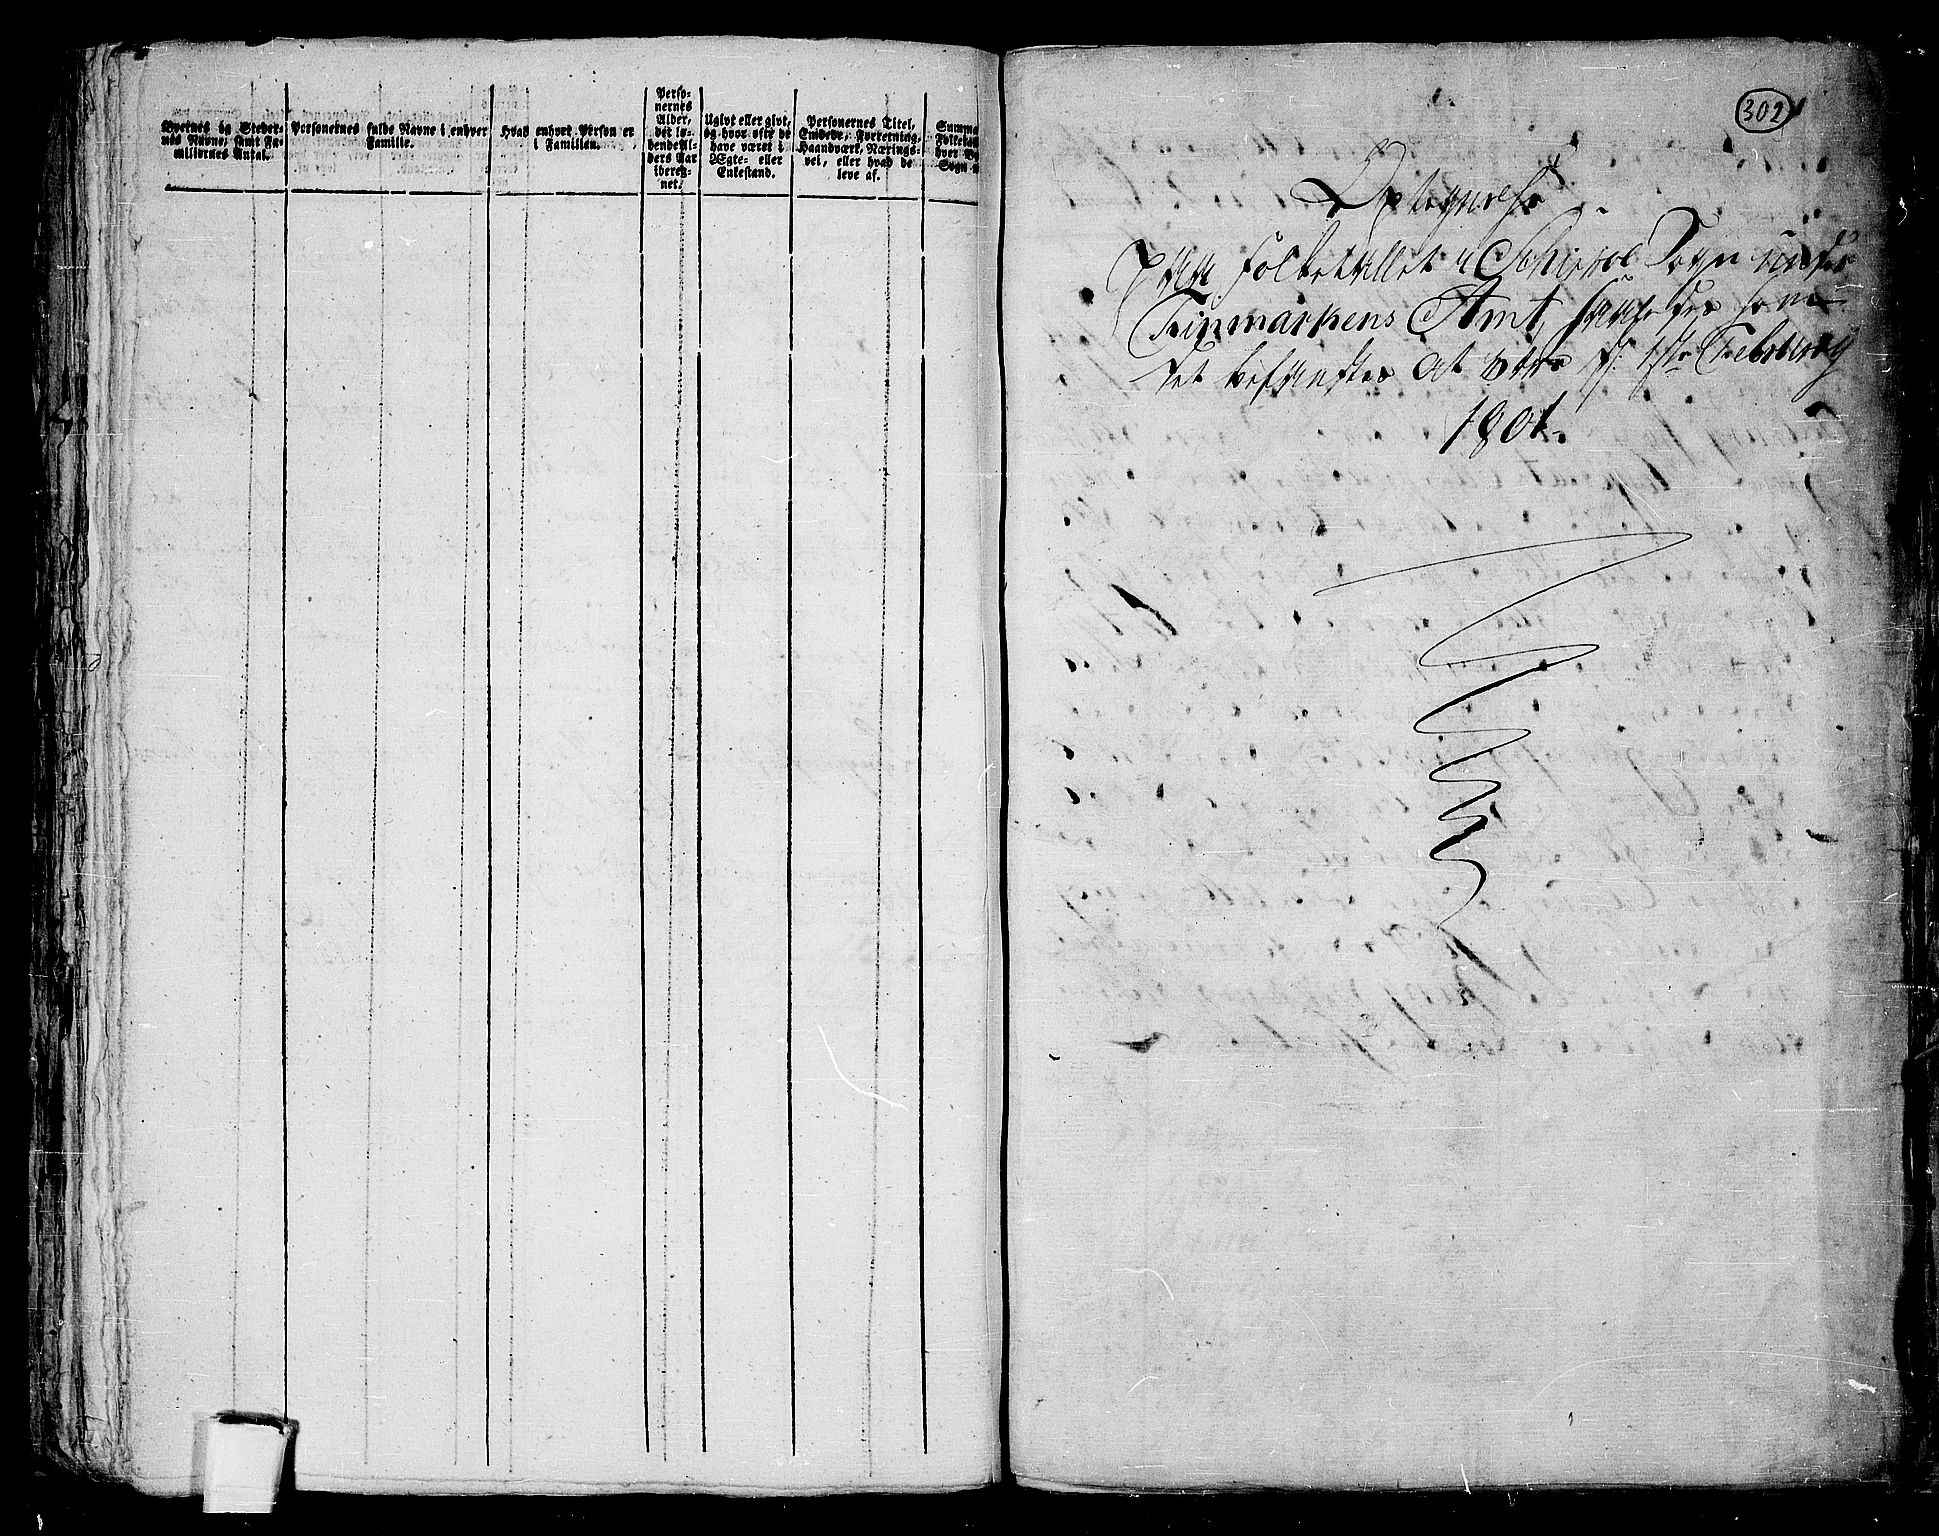 Byernes og Steder-
nes Navne, samt Fa-
miliernes Antal.
Personernes fulde Navne i enhver
Familie.
Hvad enhver Person er
i Familien.
Perso-
nernes
Alder,
det lø-
bende Al-
ders Aar
ibereg-
net.
Ugivt eller givt,
og hvor ofte de
have været i
Ægte- eller
Enkestand.
Personernes Titel,
Embede, Forretning,
Haandværk, Nærings-
vei, eller hvad de
leve af.
Summa
Folketal
hver
Sogn
302
Optegnelse
Folketallet i Sogn under
Finmarkens Amt, som
det befandtes at være d. 1ste Februarij
1801.